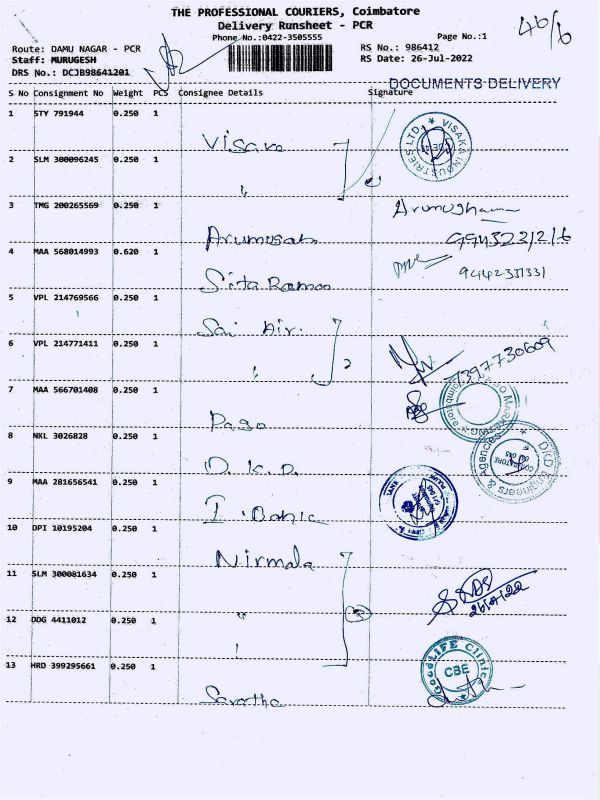 THE PROFESSIONAL COURIERS, Coimbatore
Delivery Runsheet - PCR
Phone No.:0422-3505555
Page No.:1
Route: DAMU NAGAR - PCR
RS No.: 986412
Staff: MURUGESH
RS Date: 26-Jul-2022
DRS No.: DCJB98641201
DOCUMENTS DELIVERY
S No Consignment No Weight PCS Consignee Details Signature
1 STY 791944 0.250 1
Visaka
VISAKA INDUSTRIES LTD.
2 SLM 300096245 0.250 1
"
3 TMG 200265569 0.250 1
Arumugam
4 MAA 568014993 0.620 1
9442331331
Sita Raman
5 VPL 214769566 0.250 1
Sai Air.
6 VPL 214771411 0.250 1
" 2
7397730609
7 MAA 566701408 0.250 1
8 NKL 3026828 0.250 1
D.K.D.
DKD Engineers & Agencies
COIMBATORE
9 MAA 281656541 0.250 1
10 DPI 10195204 0.250 1
Nirmala
11 SLM 300081634 0.250 1
3
12 DDG 4411012 0.250 1
"
13 HRD 399295661 0.250 1
GoodLIFE Clinic
CBE